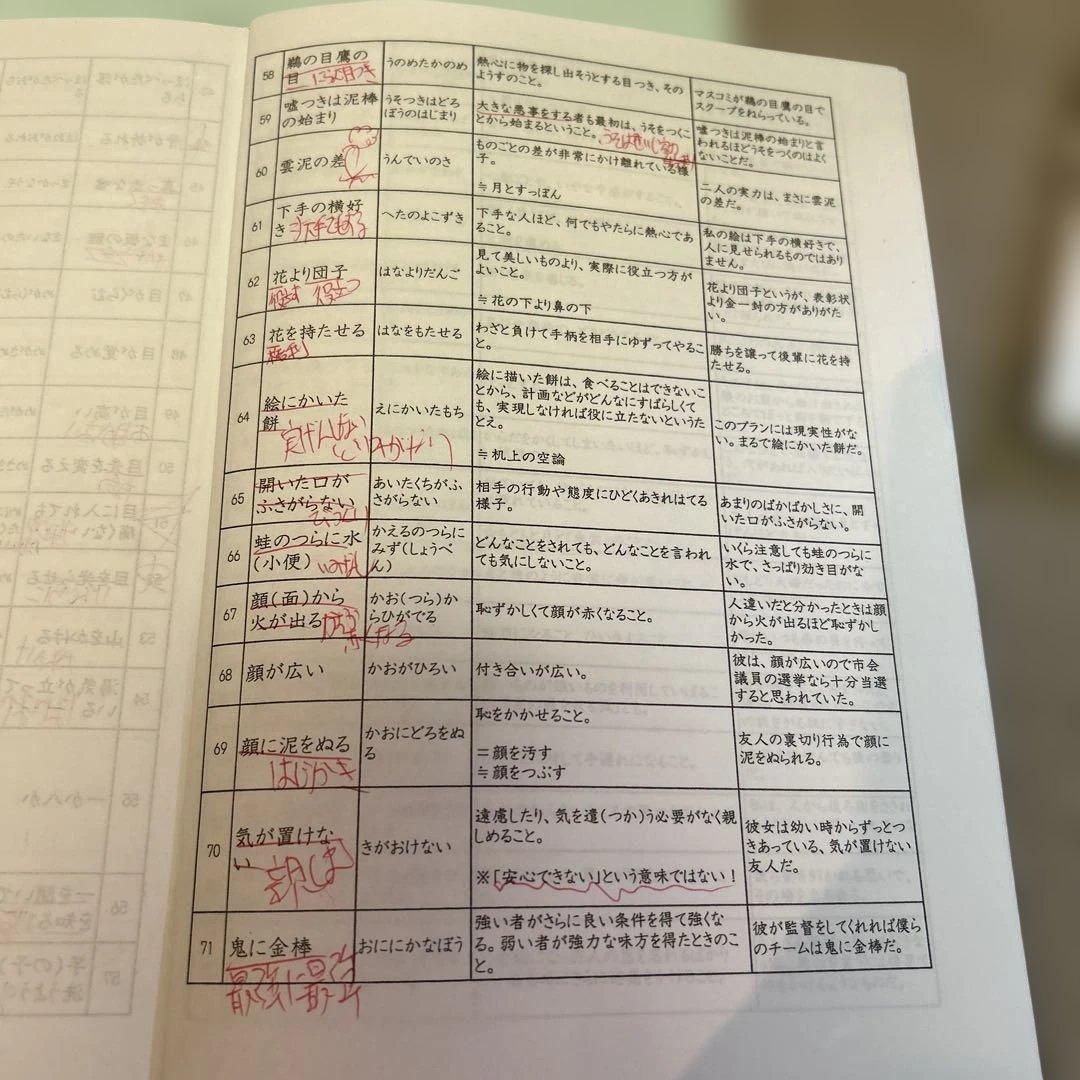 58
鵜の目鷹の
目
うのめたかのめ
熱心に物を探し出そうとする目つき、その
ようすのこと。
マスコミが鵜の目鷹の目で
スクープをねらっている。
59
嘘つきは泥棒
の始まり
うそつきはどろ
ぼうのはじまり
大きな悪事をする者も最初は、うそをつくこ
とから始まるということ。
嘘つきは泥棒の始まりと言
われるほどうそをつくのはよく
ないことだ。
60
雲泥の差
うんでいのさ
ものごとの差が非常にかけ離れている様
子。
≒月とすっぽん
二人の実力は、まさに雲泥
の差だ。
61
下手の横好
き
へたのよこずき
下手な人ほど、何でもやたらに熱心であ
ること。
私の絵は下手の横好きで、
人に見せられるものではあり
ません。
62
花より団子
役立つ
はなよりだんご
見て美しいものより、実際に役立つ方が
よいこと。
≒花の下より鼻の下
花より団子というが、表彰状
より金一封の方がありがた
い。
63
花を持たせる
はなをもたせる
わざと負けて手柄を相手にゆずってやるこ
と。
勝ちを譲って後輩に花を持
たせる。
64
絵にかいた
餅
えにかいたもち
絵に描いた餅は、食べることはできないこ
とから、計画などがどんなにすばらしくて
も、実現しなければ役に立たないというた
とえ。
≒机上の空論
このプランには現実性がな
い。まるで絵にかいた餅だ。
65
開いた口が
ふさがらない
あいたくちがふ
さがらない
相手の行動や態度にひどくあきれはてる
様子。
あまりのばかばかしさに、開
いた口がふさがらない。
66
蛙のつらに水
(小便)
かえるのつらに
みず(しょうべ
ん)
どんなことをされても、どんなことを言われ
ても気にしないこと。
いくら注意しても蛙のつらに
水で、さっぱり効き目がな
い。
67
顔(面)から
火が出る
赤くなる
かお(つら)か
らひがでる
恥ずかしくて顔が赤くなること。
人違いだと分かったときは顔
から火が出るほど恥ずかし
かった。
68
顔が広い
かおがひろい
付き合いが広い。
彼は、顔が広いので市会
議員の選挙なら十分当選
すると思われていた。
69
顔に泥をぬる
はじかかき
かおにどろをぬ
る
恥をかかせること。
=顔を汚す
≒顔をつぶす
友人の裏切り行為で顔に
泥をぬられる。
70
気が置けな
い
きがおけない
遠慮したり、気を遣(つか)う必要がなく親
しめること。
※「安心できない」という意味ではない!
彼女は幼い時からずっとつ
きあっている、気が置けない
友人だ。
71
鬼に金棒
おににかなぼう
強い者がさらに良い条件を得て強くな
る。弱い者が強力な味方を得たときのこ
と。
彼が監督をしてくれれば僕ら
のチームは鬼に金棒だ。